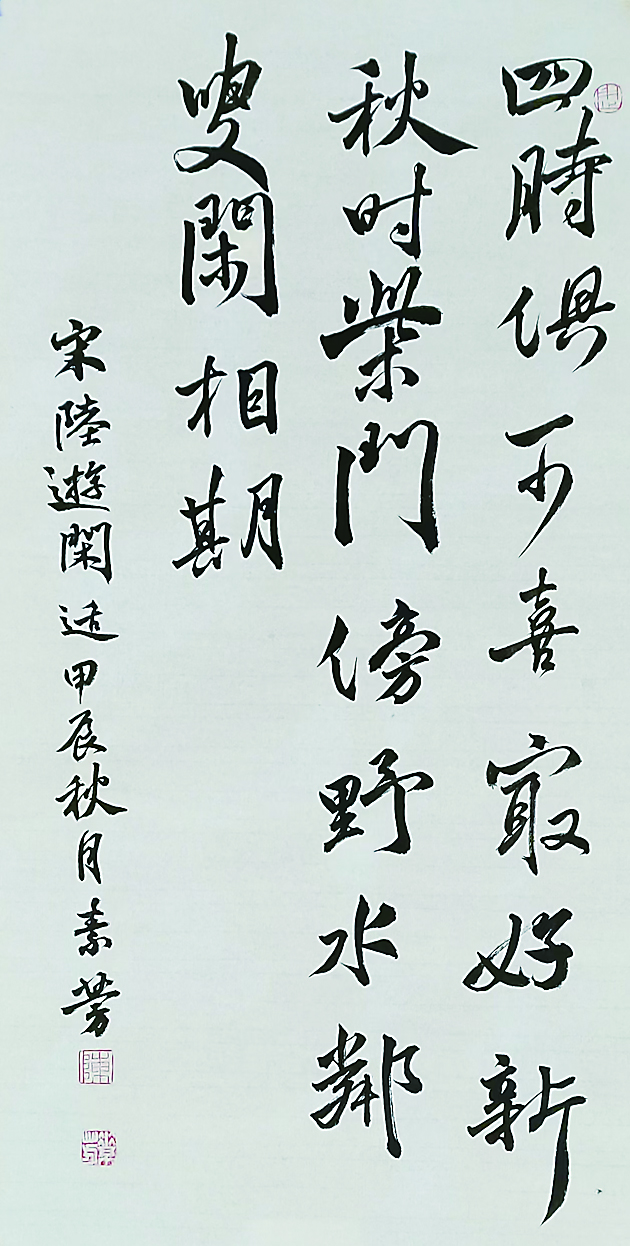 四時俱可喜寂好新
秋时柴門傍野水鄰
叟閑相期
宋陸遊閑适甲辰秋月素芳
陳